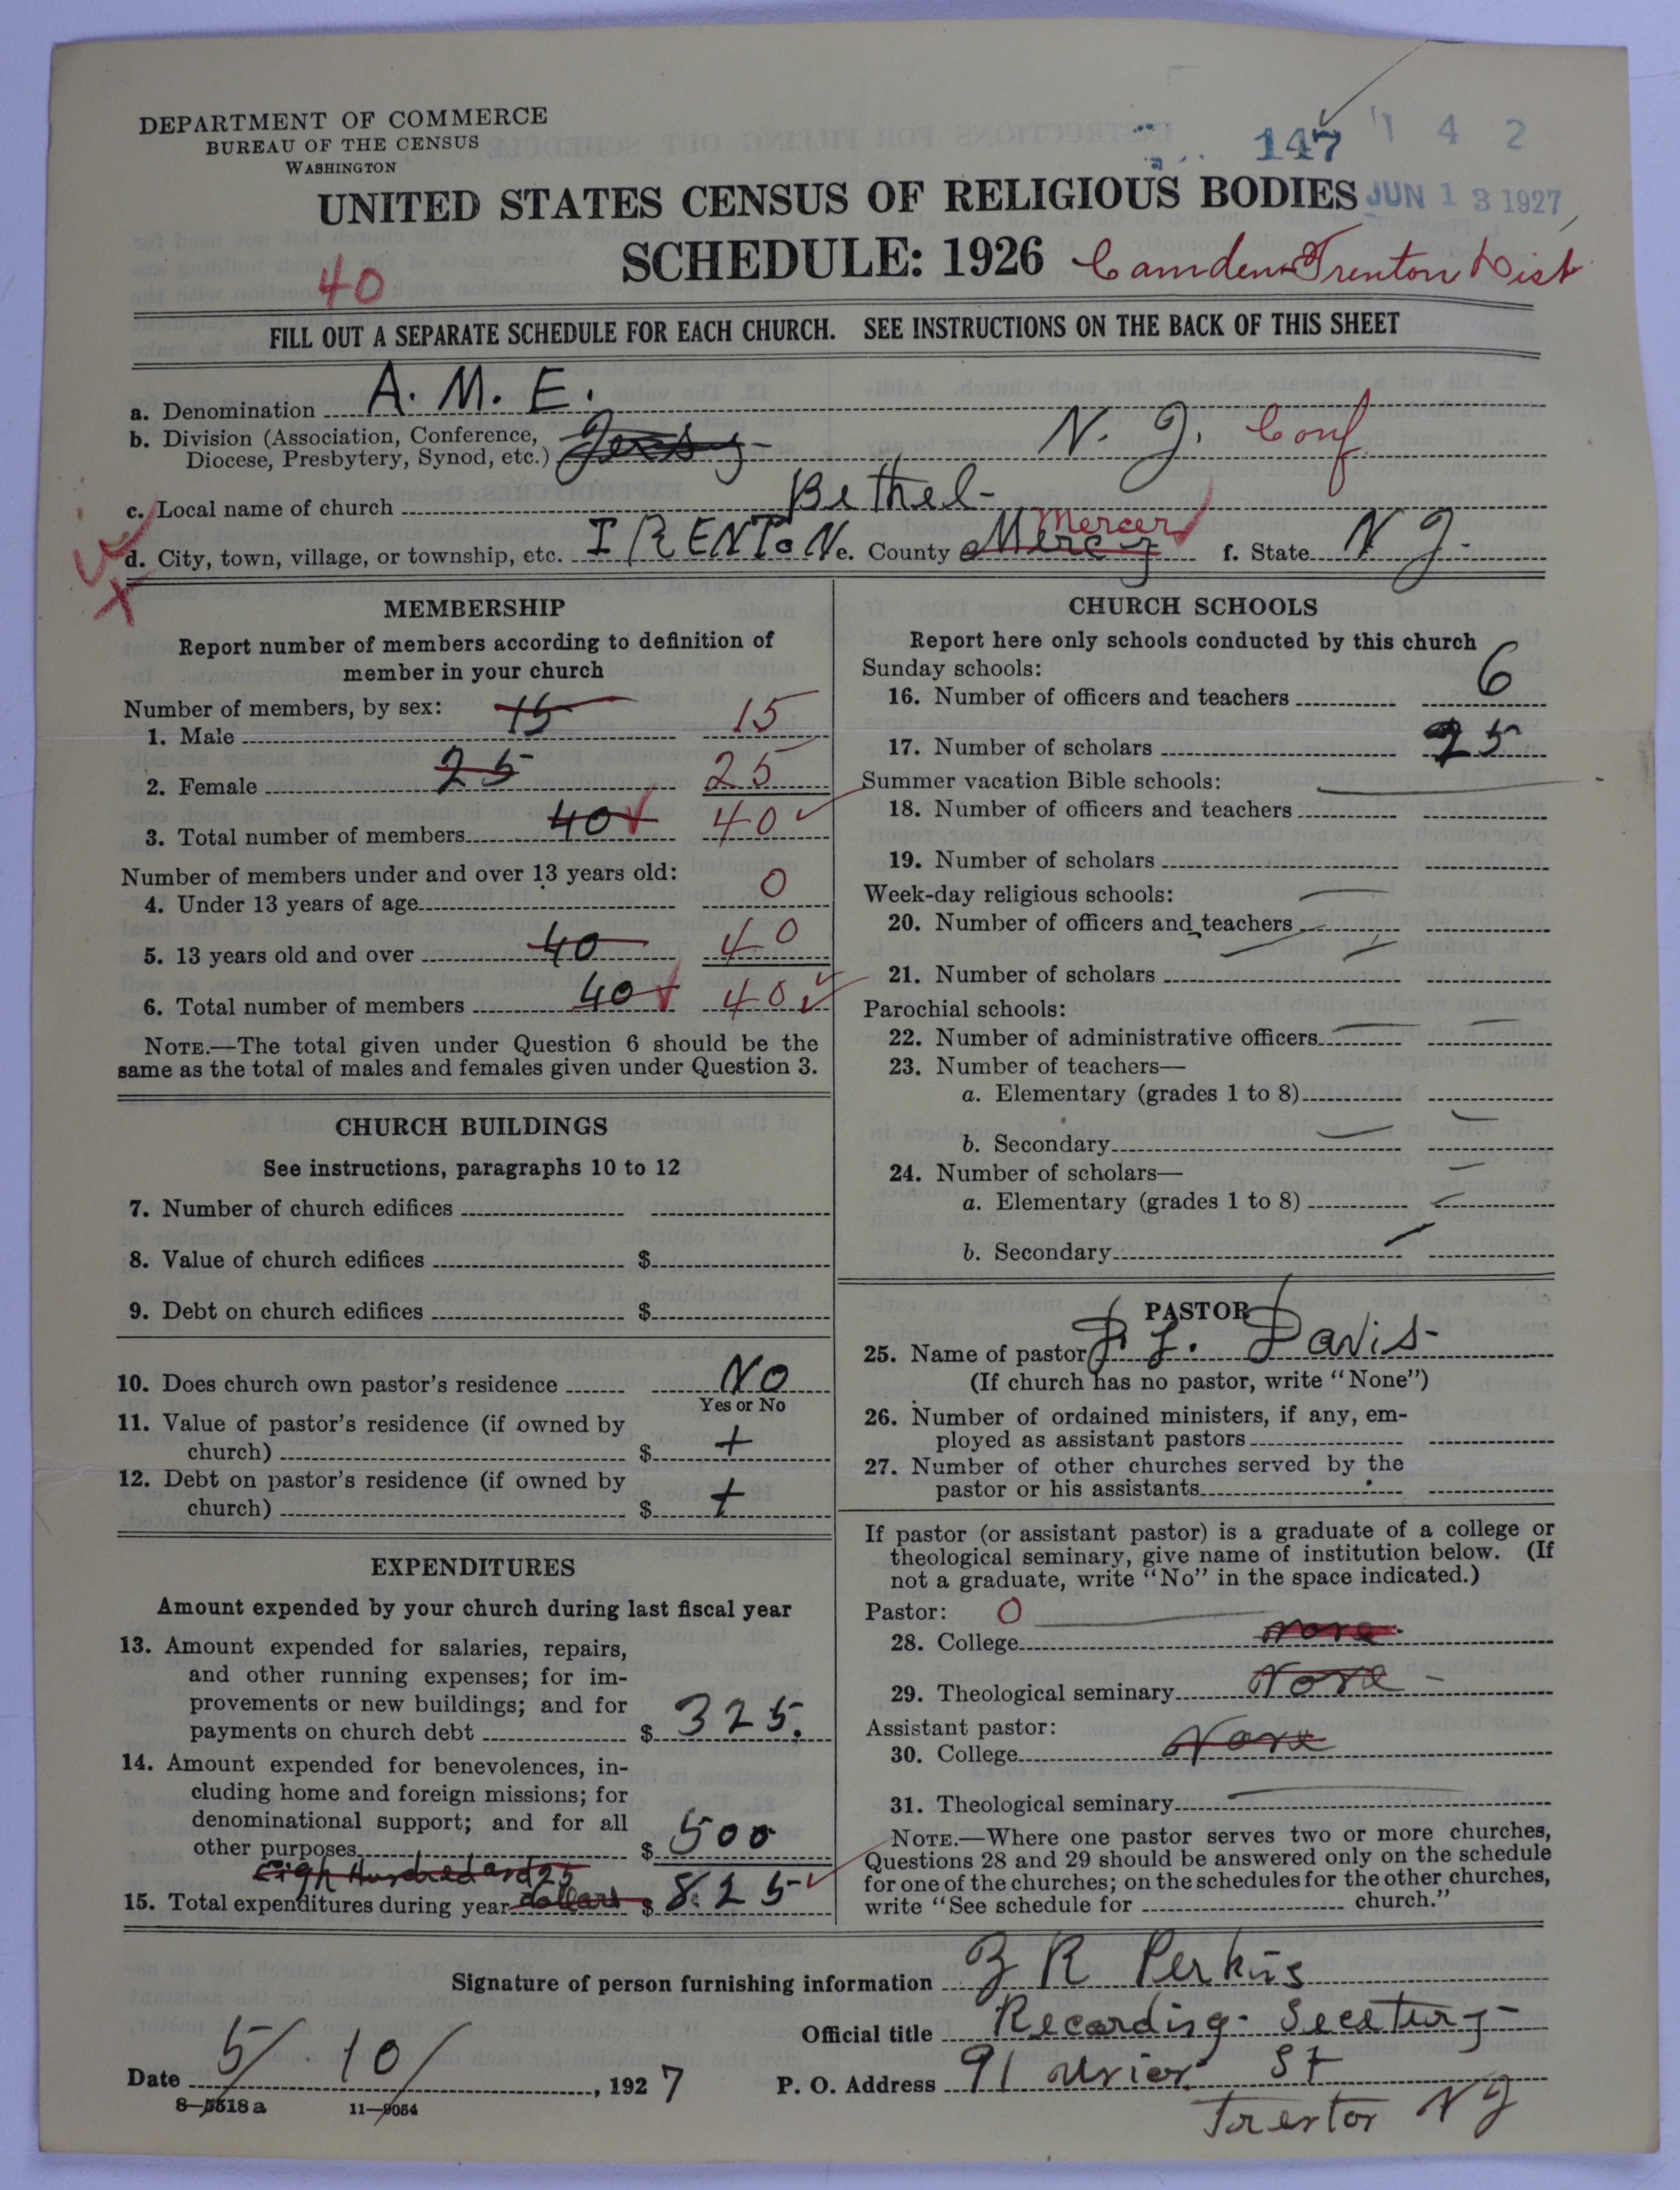 DEPARTMENT OF COMMERCE
BUREAU OF THE CENSUS
WASHINGTON
147 142
UNITED STATES CENSUS OF RELIGIOUS BODIES JUN 13 1927
SCHEDULE: 1926 Camden-Trenton Dist
40
FILL OUT A SEPARATE SCHEDULE FOR EACH CHURCH. SEE INSTRUCTIONS ON THE BACK OF THIS SHEET
a. Denomination A. M. E.
b. Division (Association, Conference,
Diocese, Presbytery, Synod, etc.) N. J. Conf
c. Local name of church Bethel-
d. City, town, village, or township, etc. TRENTON e. County Mercer f. State N J-
MEMBERSHIP
Report number of members according to definition of
member in your church
Number of members, by sex:
1. Male 15 15
2. Female 25 25
3. Total number of members 40 40
Number of members under and over 13 years old:
4. Under 13 years of age 0
5. 13 years old and over 40 40
6. Total number of members 40 40
NOTE.—The total given under Question 6 should be the
same as the total of males and females given under Question 3.
CHURCH BUILDINGS
See instructions, paragraphs 10 to 12
7. Number of church edifices
8. Value of church edifices $
9. Debt on church edifices $
10. Does church own pastor's residence No
Yes or No
11. Value of pastor's residence (if owned by
church) $ +
12. Debt on pastor's residence (if owned by
church) $ +
EXPENDITURES
Amount expended by your church during last fiscal year
13. Amount expended for salaries, repairs,
and other running expenses; for im-
provements or new buildings; and for
payments on church debt $ 325.
14. Amount expended for benevolences, in-
cluding home and foreign missions; for
denominational support; and for all
other purposes $ 500
Eigh Hundred and 25
15. Total expenditures during year dollars $ 825
CHURCH SCHOOLS
Report here only schools conducted by this church
Sunday schools:
16. Number of officers and teachers 6
17. Number of scholars 25
Summer vacation Bible schools:
18. Number of officers and teachers
19. Number of scholars
Week-day religious schools:
20. Number of officers and teachers
21. Number of scholars
Parochial schools:
22. Number of administrative officers
23. Number of teachers—
a. Elementary (grades 1 to 8)
b. Secondary
24. Number of scholars—
a. Elementary (grades 1 to 8)
b. Secondary
PASTOR
25. Name of pastor P. L. Davis-
(If church has no pastor, write "None")
26. Number of ordained ministers, if any, em-
ployed as assistant pastors
27. Number of other churches served by the
pastor or his assistants
If pastor (or assistant pastor) is a graduate of a college or
theological seminary, give name of institution below. (If
not a graduate, write "No" in the space indicated.)
Pastor: 0
28. College None
29. Theological seminary None -
Assistant pastor:
30. College None
31. Theological seminary
NOTE.—Where one pastor serves two or more churches,
Questions 28 and 29 should be answered only on the schedule
for one of the churches; on the schedules for the other churches,
write "See schedule for church."
Signature of person furnishing information Z R Perkins
Official title Recording-
Date 5/10/, 1927 P. O. Address 91 St
Trenton N J
8—5518 a 11—9054